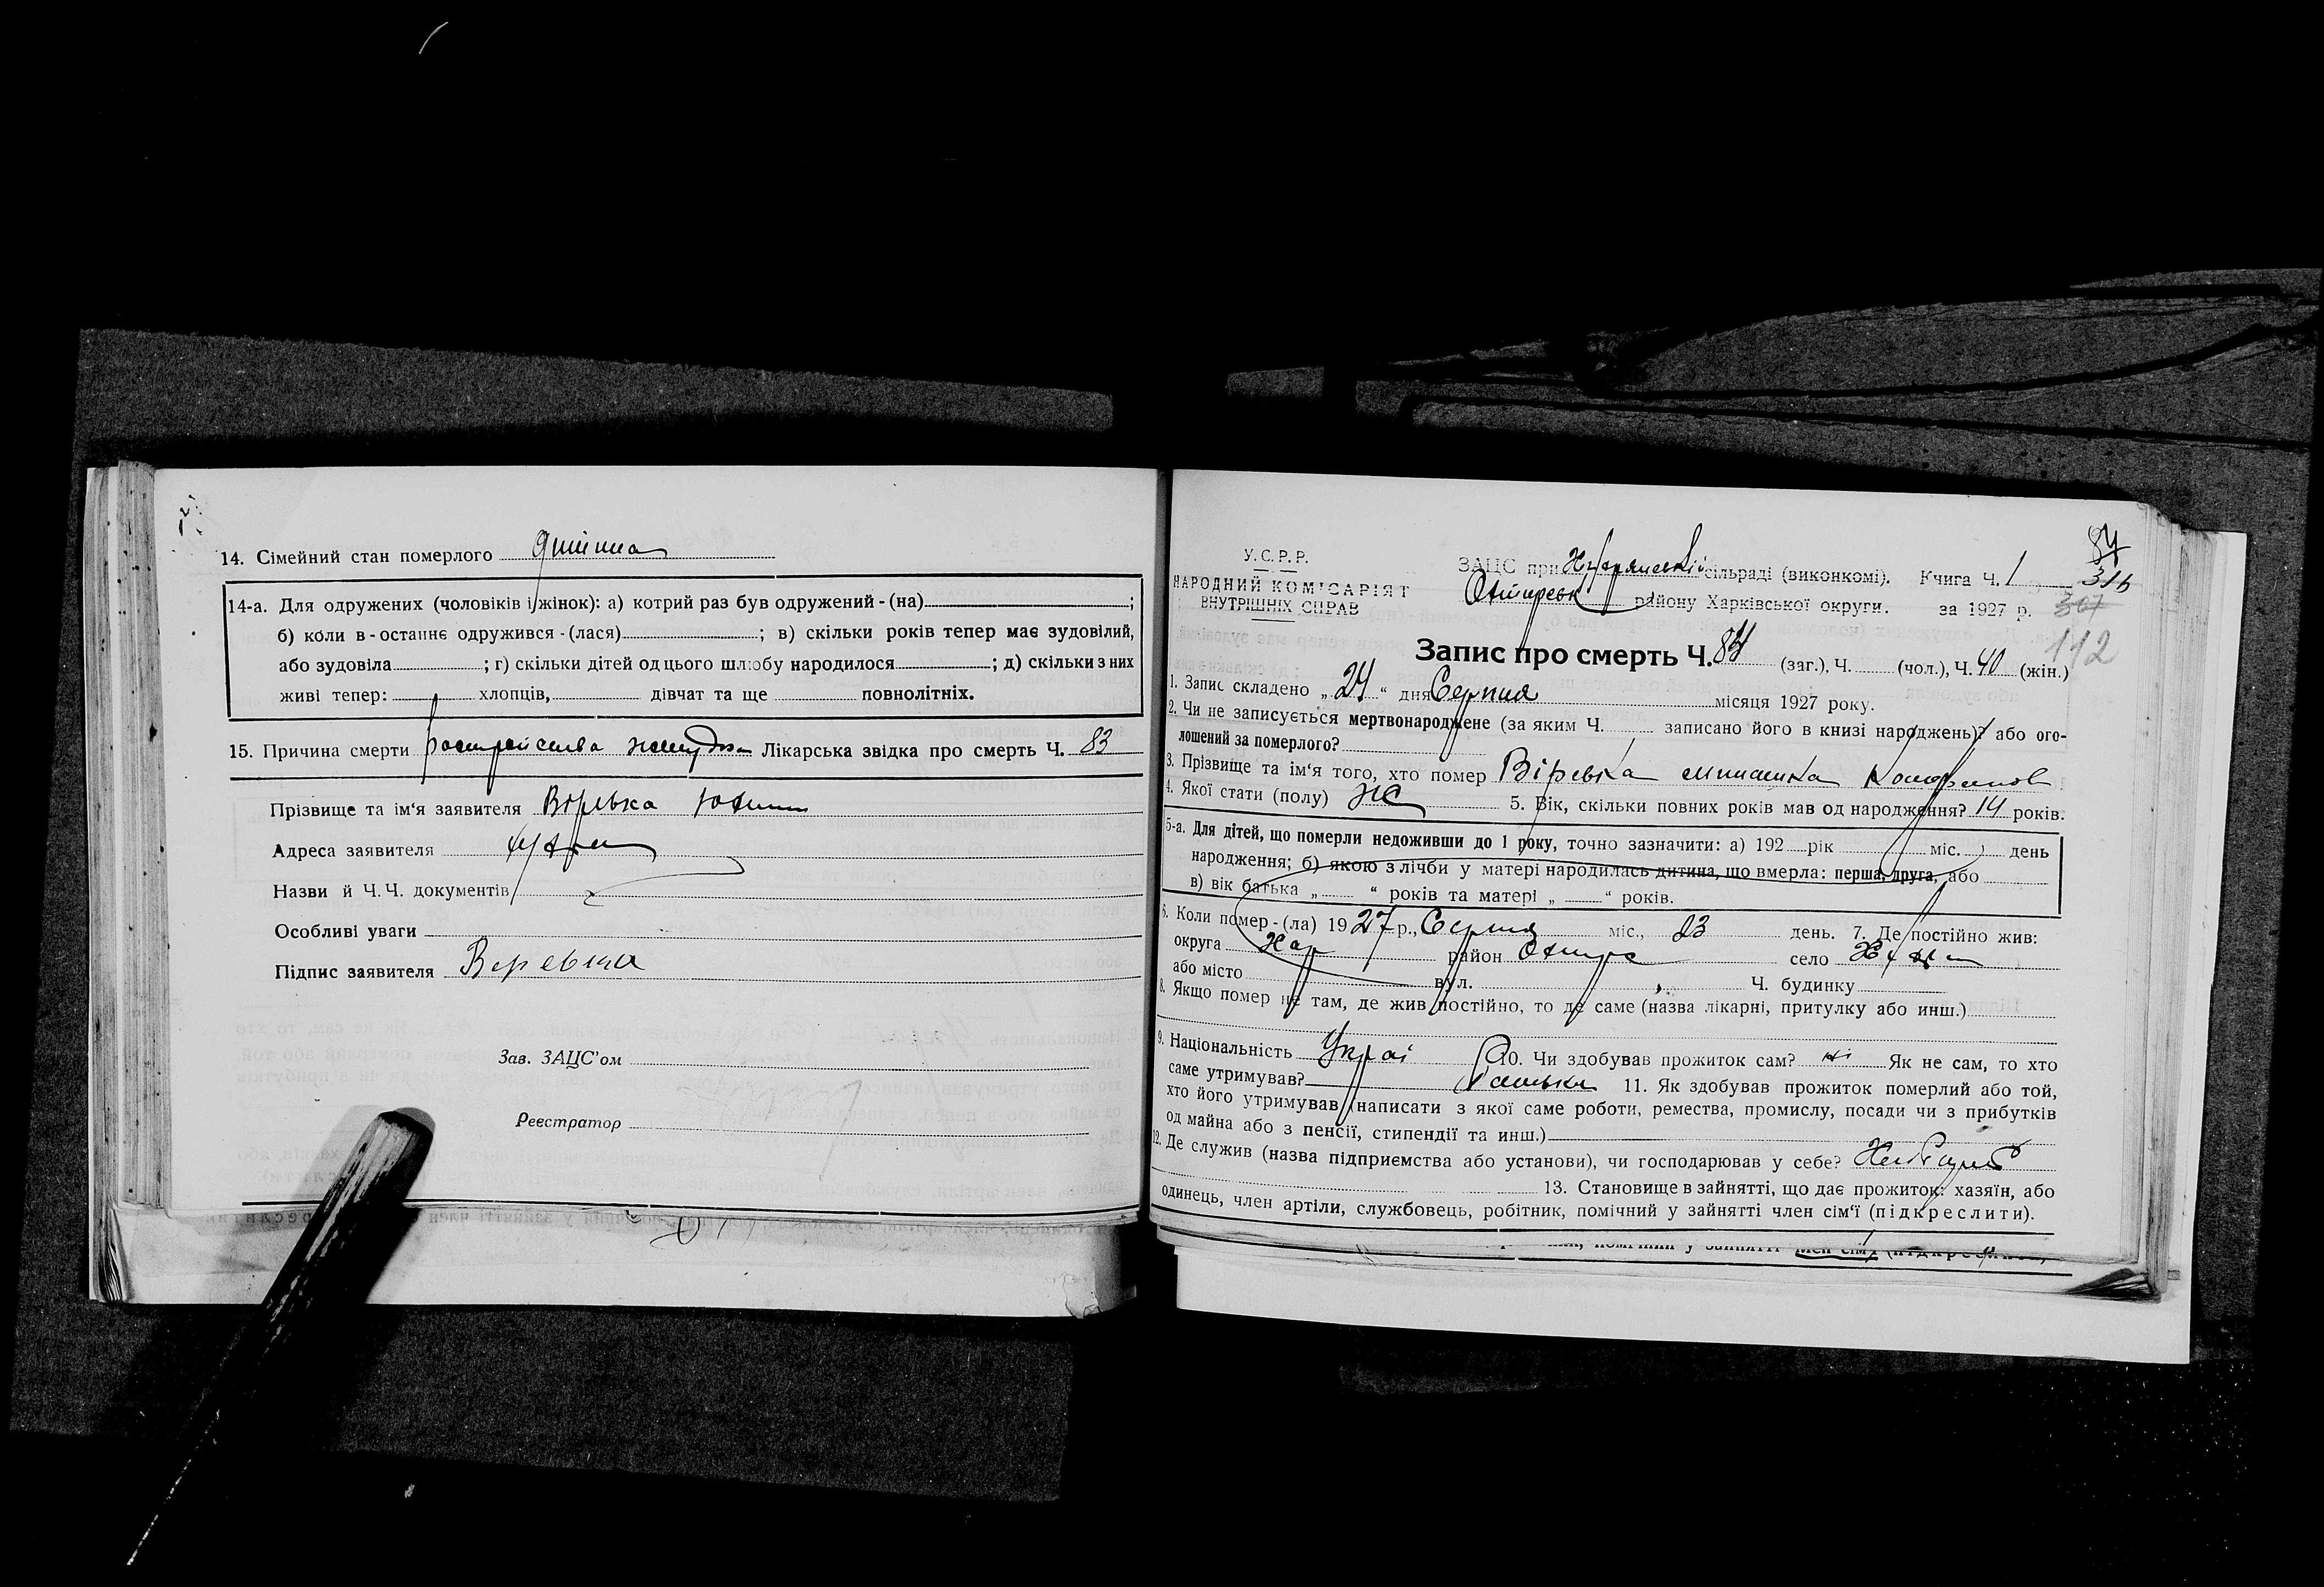 14. Сімейний стан померлого
14-а. Для одружених (чоловіків і жінок): а) котрий раз був одружений - (на) ;
б) коли в - останнє одружився - (лася) ; в) скільки років тепер має зудовілий,
або зудовіла ; г) скільки дітей од цього шлюбу народилося ; д) скільки з них
живі тепер: хлопців, дівчат та ще повнолітніх.
15. Причина смерти Лікарська звідка про смерть Ч. 83
Прізвище та ім'я заявителя Вірьвка
Адреса заявителя
Назви й Ч. Ч. документів
Особливі уваги
Підпис заявителя Веревка
Зав. ЗАЦС'ом
Реєстратор
84
У.С.Р.Р.
НАРОДНИЙ КОМІСАРІЯТ
ВНУТРІШНІХ СПРАВ
ЗАЦС при сільраді (виконкомі). Книга Ч. 1 316
району Харківської округи. за 1927 р. 307
112
Запис про смерть Ч. 84 (заг.), Ч. (чол.), Ч. 40 (жін.)
1. Запис складено „ 24 “ дня Серпня місяця 1927 року.
2. Чи не записується мертвонароджене (за яким Ч. записано його в книзі народжень)? або ого-
лошений за померлого?
3. Прізвище та ім'я того, хто помер Віревка
4. Якої стати (полу) Ж 5. Вік, скільки повних років мав од народження? 14 років.
5-а. Для дітей, що померли недоживши до 1 року, точно зазначити: а) 192 рік міс. день
народження; б) якою з лічби у матері народилась дитина, що вмерла: перша, друга, або
в) вік батька „ “ років та матері „ “ років.
6. Коли помер - (ла) 1927 р., Серпня міс., 23 день. 7. Де постійно жив:
округа Хар район село
або місто вул. Ч. будинку
8. Якщо помер не там, де жив постійно, то де саме (назва лікарні, притулку або инш.)
9. Національність Украі 10. Чи здобував прожиток сам? ні Як не сам, то хто
саме утримував? Батька 11. Як здобував прожиток померлий або той,
хто його утримував (написати з якої саме роботи, ремества, промислу, посади чи з прибутків
од майна або з пенсії, стипендії та инш.)
12. Де служив (назва підприємства або установи), чи господарював у себе?
13. Становище в зайнятті, що дає прожиток: хазяїн, або
одинець, член артіли, службовець, робітник, помічний у зайнятті член сім'ї (підкреслити).